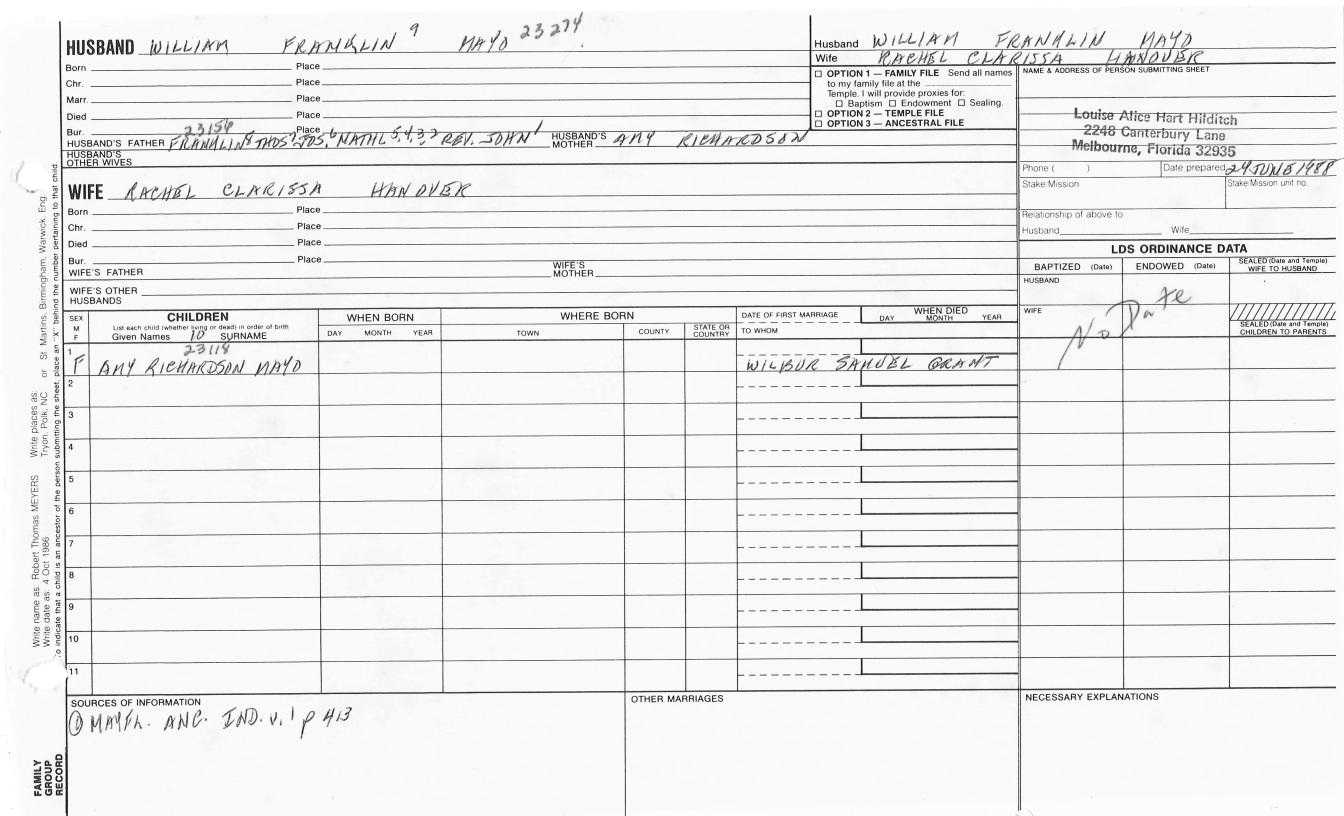 HUSBAND WILLIAM FRANKLIN 9 MAYO 23274
Born Place
Chr. Place
Marr. Place
Died Place
Bur. Place
23156
HUSBAND'S FATHER FRANKLIN 8 THOS 7 JOS. 6 NATHL 5,4,3,2 REV. JOHN 1 HUSBAND'S MOTHER AMY RICHARDSON
HUSBAND'S OTHER WIVES
WIFE RACHEL CLARISSA HANOVER
Born Place
Chr. Place
Died Place
Bur. Place
WIFE'S FATHER WIFE'S MOTHER
WIFE'S OTHER HUSBANDS
Husband WILLIAM FRANKLIN MAYO
Wife RACHEL CLARISSA HANOVER
☐ OPTION 1 — FAMILY FILE Send all names
to my family file at the
Temple. I will provide proxies for:
☐ Baptism ☐ Endowment ☐ Sealing.
☐ OPTION 2 — TEMPLE FILE
☐ OPTION 3 — ANCESTRAL FILE
NAME & ADDRESS OF PERSON SUBMITTING SHEET
Louise Alice Hart Hilditch
2248 Canterbury Lane
Melbourne, Florida 32935
Phone ( ) Date prepared 24 JUNE 1988
Stake/Mission Stake/Mission unit no.
Relationship of above to
Husband Wife
LDS ORDINANCE DATA
BAPTIZED (Date) ENDOWED (Date) SEALED (Date and Temple) WIFE TO HUSBAND
HUSBAND
WIFE
No Date
SEALED (Date and Temple) CHILDREN TO PARENTS
SEX M F
CHILDREN
List each child (whether living or dead) in order of birth
Given Names 10 SURNAME
WHEN BORN
DAY MONTH YEAR
WHERE BORN
TOWN COUNTY STATE OR COUNTRY
DATE OF FIRST MARRIAGE
TO WHOM
WHEN DIED
DAY MONTH YEAR
23118
1 F AMY RICHARDSON MAYO WILBUR SAMUEL GRANT
2
3
4
5
6
7
8
9
10
11
SOURCES OF INFORMATION
① MAYFL. ANC. IND. v. 1 p 413
OTHER MARRIAGES
NECESSARY EXPLANATIONS
Write name as: Robert Thomas MEYERS Write places as: Tryon, Polk, NC or St Martins, Birmingham, Warwick, Eng.
Write date as: 4 Oct 1986
To indicate that a child is an ancestor of the person submitting the sheet, place an "X" behind the number pertaining to that child.
FAMILY GROUP RECORD